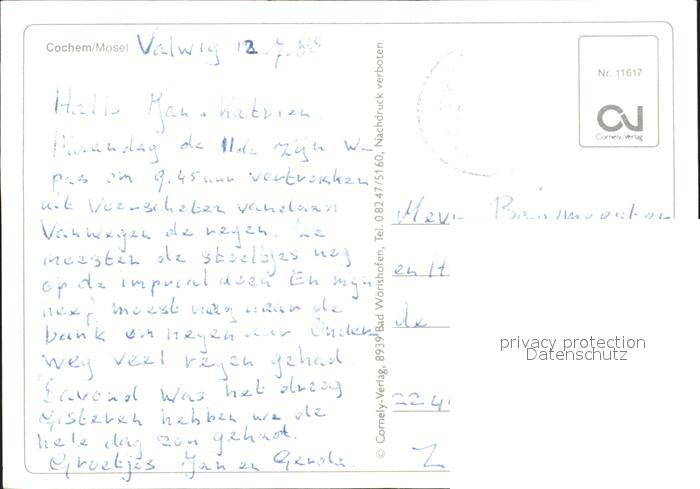 Cochem/Mosel Valwig 12-7-88
Nr. 11617
Cornely-Verlag
© Cornely-Verlag, 8939 Bad Wörishofen, Tel. 08247/5160, Nachdruck verboten
Hallo Jan + Katrien.
Maandag de 11de zijn we
pas om 9.45 uur vertrokken
uit Voorschoten vandaan
Vanwegen de regen. We
moesten de stoeltjes nog
op de imperial doen En mijn
neef moest nog naar de
bank om negen uur Onder-
weg veel regen gehad.
Savond was het droog
Gisteren hebben we de
hele dag zon gehad.
Groetjes Jan en Gerda.
Mevr
en H
de
224
Z
privacy protection
Datenschutz